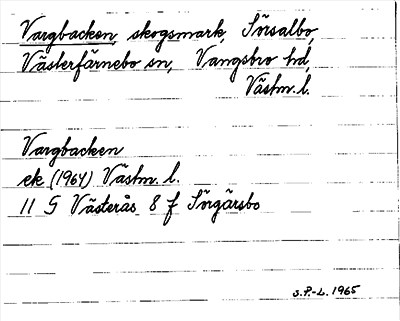 Vargbacken, skogsmark, Sörsalbo,
Västerfärnebo sn, Vangsbro hd,
Västm. l.
Vargbacken
ek (1964) Västm. l.
11 G Västerås 8 f Sörgärsbo
S.P.-L. 1965